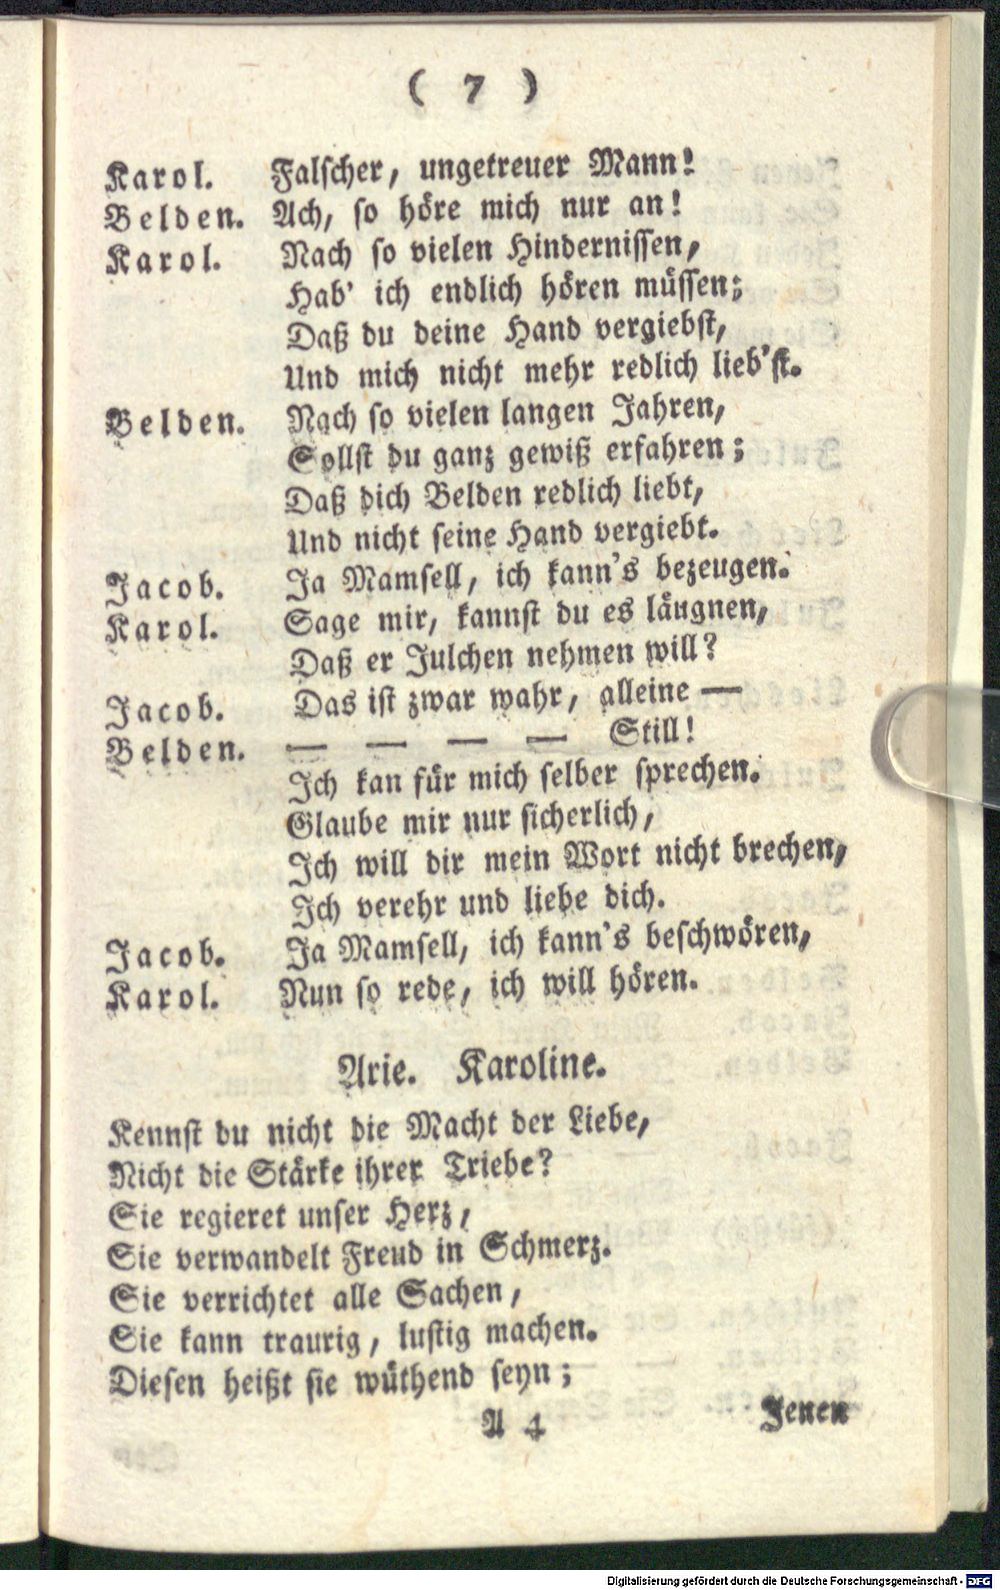 ( 7 )
Karol. Falscher, ungetreuer Mann!
Belden. Ach, so höre mich nur an!
Karol. Nach so vielen Hindernissen,
Hab' ich endlich hören müssen;
Daß du deine Hand vergiebst,
Und mich nicht mehr redlich lieb'st.
Belden. Nach so vielen langen Jahren,
Sollst du ganz gewiß erfahren;
Daß dich Belden redlich liebt,
Und nicht seine Hand vergiebt.
Jacob. Ja Mamsell, ich kann's bezeugen.
Karol. Sage mir, kannst du es läugnen,
Daß er Julchen nehmen will?
Jacob. Das ist zwar wahr, alleine —
Belden. — — — — Still!
Ich kan für mich selber sprechen.
Glaube mir nur sicherlich,
Ich will dir mein Wort nicht brechen,
Ich verehr und liebe dich.
Jacob. Ja Mamsell, ich kann's beschwören,
Karol. Nun so rede, ich will hören.
Arie. Karoline.
Kennst du nicht die Macht der Liebe,
Nicht die Stärke ihrer Triebe?
Sie regieret unser Herz,
Sie verwandelt Freud in Schmerz.
Sie verrichtet alle Sachen,
Sie kann traurig, lustig machen.
Diesen heißt sie wüthend seyn;
A 4 Jenen
Digitalisierung gefördert durch die Deutsche Forschungsgemeinschaft - DFG